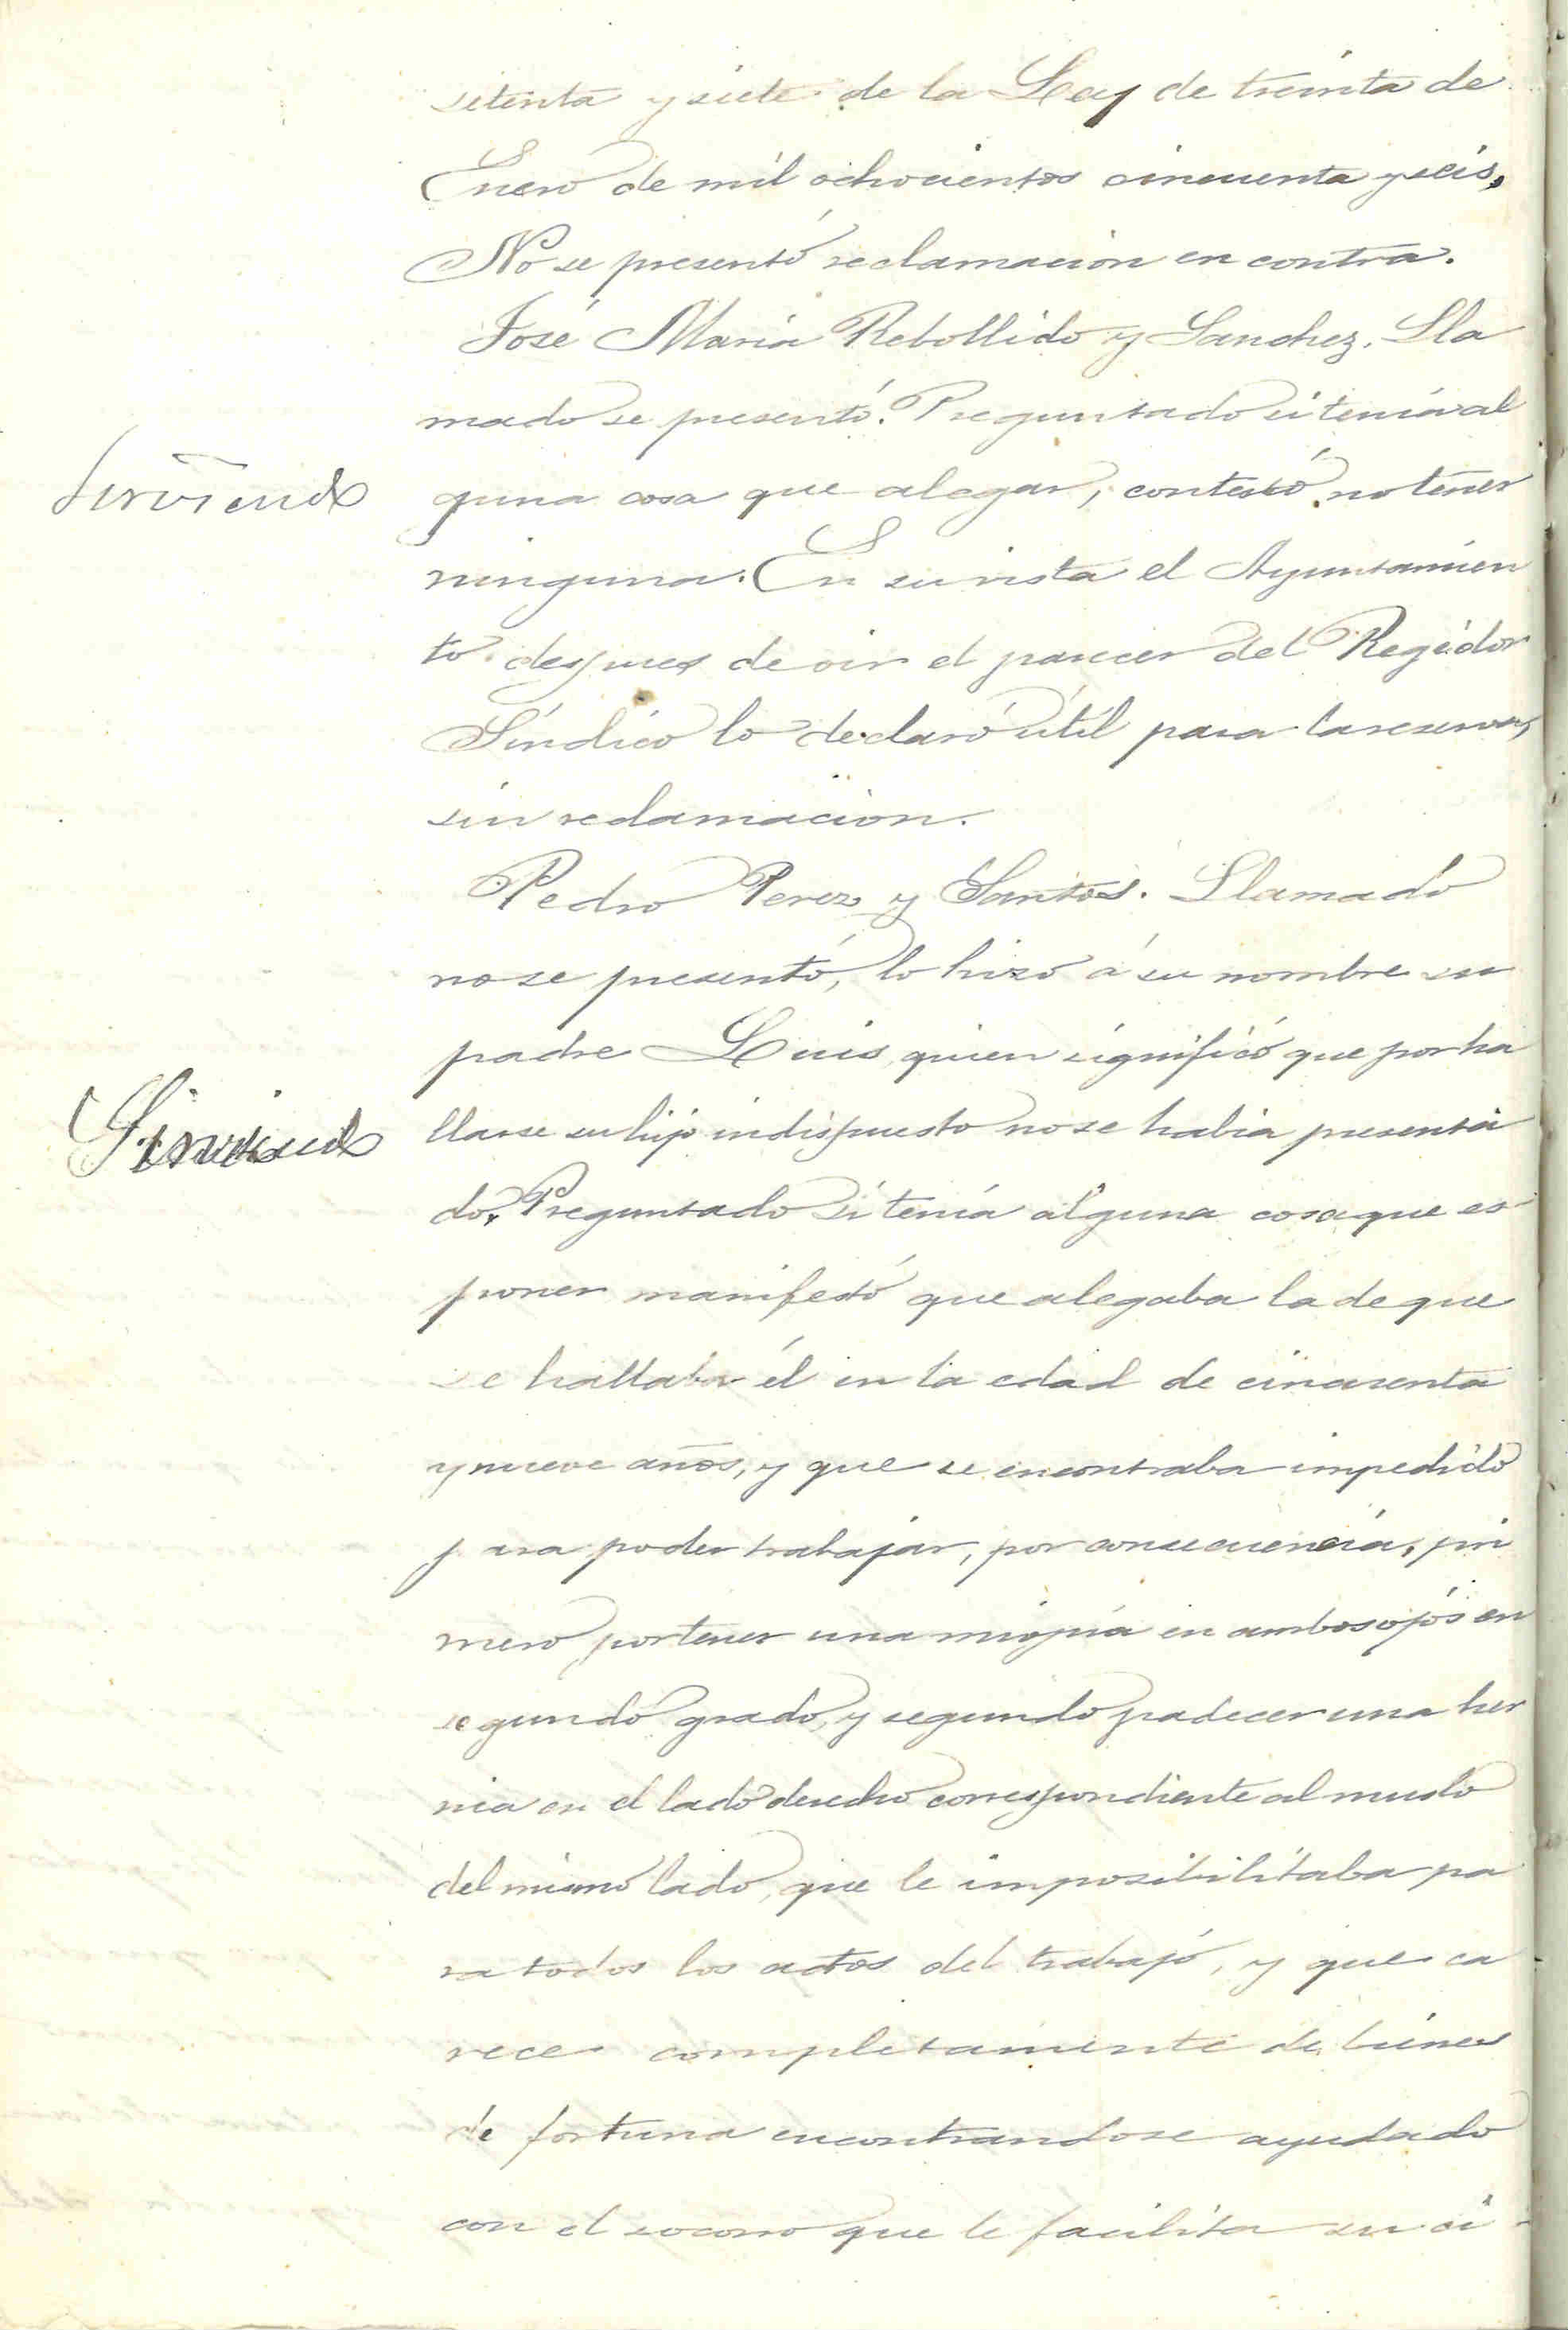 setenta y siete de la Ley de treinta de
Enero de mil ochocientos cincuenta y seis,
No se presentó reclamacion en contra.
José Maria Rebollido y Sanchez. Lla
mado se presentó. Preguntado si tenía al
Sirviendo
guna cosa que alegar, contestó no tener
ninguna. En su vista el Ayuntamien
to despues de oir el parecer del Regidor
Síndico lo declaró útil para la reserva,
sin reclamacion.
Pedro Perez y Santos. Llamado
no se presentó, lo hizo á su nombre su
padre Luis, quien significó que por ha
Sirviendo
llarse su hijo indispuesto no se habia presenta
do. Preguntado si tenía alguna cosa que es
poner manifestó que alegaba la de que
se hallaba él en la edad de cincuenta
y nueve años, y que se encontraba impedido
para poder trabajar, por consecuencia, pri
mero, por tener una miopía en ambos ojos en
segundo grado, y segundo padecer una her
nia en el lado derecho correspondiente al muslo
del mismo lado, que le imposibilitaba pa
ra todos los actos del trabajo, y que ca
rece completamente de bienes
de fortuna encontrandose ayudado
con el socorro que le facilita su ci